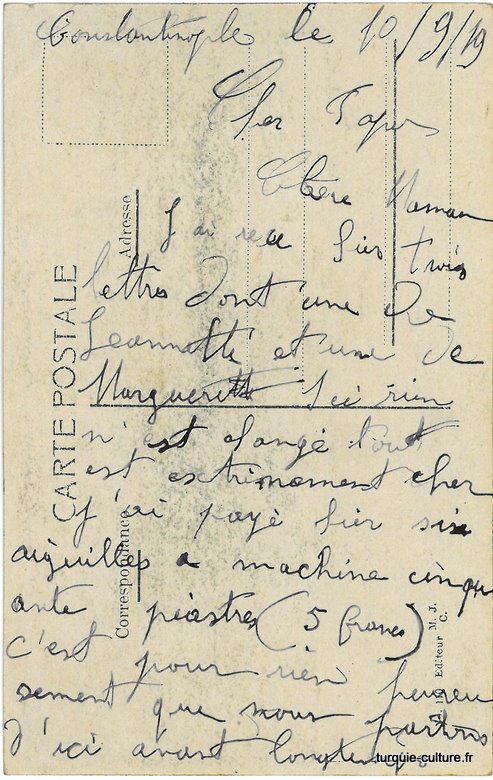 Constantinople le 10/9/19
Cher Papa
Chère Maman
J'ai reçu hier trois
lettres dont une de
Jeannette et une de
Marguerite Ici rien
n'est changé tout
est extrimement cher
j'ai payé hier six
aiguilles a machine cinqu
ante piastres (5 francs)
c'est pour rien heureu
sement que nous partons
d'ici avant longtemps
CARTE POSTALE
Adresse
Correspondance
Editeur M. J. C.
turquie-culture.fr